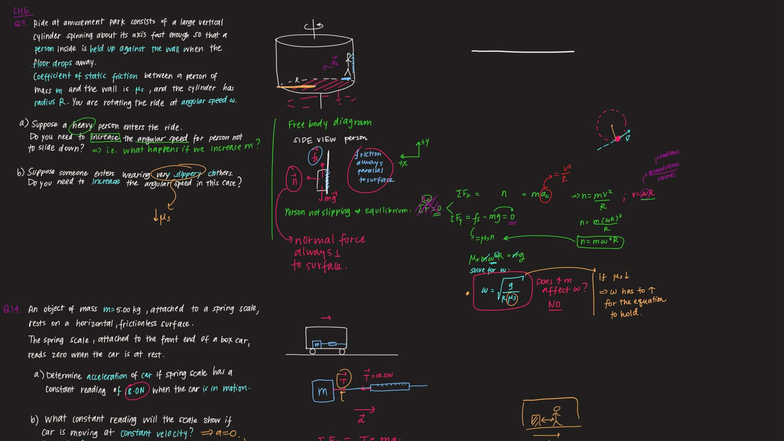 CH6
Q9. Ride at amusement park consists of a large vertical
cylinder spinning about its axis fast enough so that a
person inside is held up against the wall when the
floor drops away.
Coefficient of static friction between a person of
mass m and the wall is μs, and the cylinder has
radius R. You are rotating the ride at angular speed ω.
a) Suppose a heavy person enters the ride.
Do you need to increase the angular speed for person not
to slide down? => i.e. what happens if we increase m?
b) Suppose someone enters wearing very slippery clothes.
Do you need to increase the angular speed in this case?
↓μs
R
Free body diagram
SIDE VIEW person
fs
n
mg
friction
always
parallel
to surface
+y
+x
Person not slipping → Equilibrium: ΣF=0
normal force
always ⊥
to surface.
ΣFx = n = mac
= v²/r
=> n = mv²/R ; v = ωR
n = m(ωR)²/R
n = mω²R
ΣFy = fs - mg = 0
= μsn
μs mω²R = mg
solve for ω:
ω = √(g/(Rμs))
Does ↑ m
affect ω?
NO
If μs↓
=> ω has to ↑
for the equation
to hold.
Q14. An object of mass m = 5.00 kg, attached to a spring scale,
rests on a horizontal, frictionless surface.
The spring scale, attached to the front end of a box car,
reads zero when the car is at rest.
a) Determine acceleration of car if spring scale has a
constant reading of 18.0N when the car is in motion.
b) What constant reading will the scale show if
car is moving at constant velocity? => a=0.
m
T
T=18.0N
a